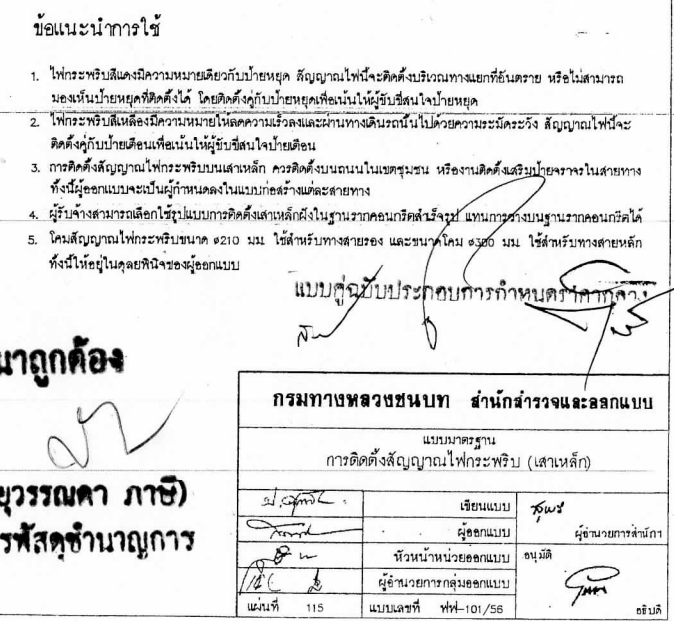 ข้อแนะนำการใช้
1. ไฟกระพริบสีแดงมีความหมายเดียวกับป้ายหยุด สัญญาณไฟนี้จะติดตั้งบริเวณทางแยกที่อันตราย หรือไม่สามารถ
มองเห็นป้ายหยุดที่ติดตั้งได้ โดยติดตั้งคู่กับป้ายหยุดเพื่อเน้นให้ผู้ขับขี่สนใจป้ายหยุด
2. ไฟกระพริบสีเหลืองมีความหมายให้ลดความเร็วลงและผ่านทางเดินรถนั้นไปด้วยความระมัดระวัง สัญญาณไฟนี้จะ
ติดตั้งคู่กับป้ายเตือนเพื่อเน้นให้ผู้ขับขี่สนใจป้ายเตือน
3. การติดตั้งสัญญาณไฟกระพริบบนเสาเหล็ก ควรติดตั้งบนถนนในเขตชุมชน หรืองานติดตั้งเสริมป้ายจราจรในสายทาง
ทั้งนี้ผู้ออกแบบจะเป็นผู้กำหนดลงในแบบก่อสร้างแต่ละสายทาง
4. ผู้รับจ้างสามารถเลือกใช้รูปแบบการติดตั้งเสาเหล็กฝังในฐานรากคอนกรีตสำเร็จรูป แทนการวางบนฐานรากคอนกรีตได้
5. โคมสัญญาณไฟกระพริบขนาด ø210 มม. ใช้สำหรับทางสายรอง และขนาดโคม ø300 มม. ใช้สำหรับทางสายหลัก
ทั้งนี้ให้อยู่ในดุลยพินิจของผู้ออกแบบ
แบบคู่ฉบับประกอบการกำหนดราคากลาง
นาถูกต้อง
ยุวรรณดา ภาษี)
รพัสดุชำนาญการ
กรมทางหลวงชนบท สำนักสำรวจและออกแบบ
แบบมาตรฐาน
การติดตั้งสัญญาณไฟกระพริบ (เสาเหล็ก)
เขียนแบบ
ผู้ออกแบบ ผู้อำนวยการสำนักฯ
หัวหน้าหน่วยออกแบบ อนุมัติ
ผู้อำนวยการกลุ่มออกแบบ
แผ่นที่ 115 แบบเลขที่ ฟฟ-101/56 อธิบดี